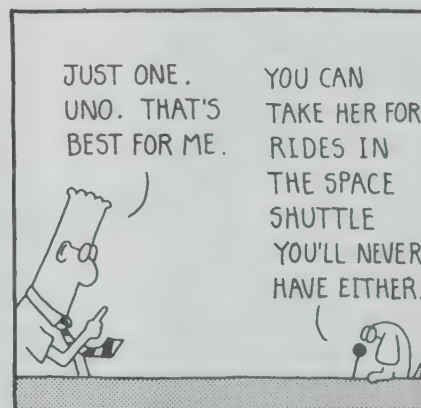 JUST ONE.
UNO. THAT'S
BEST FOR ME.
YOU CAN
TAKE HER FOR
RIDES IN
THE SPACE
SHUTTLE
YOU'LL NEVER
HAVE EITHER.